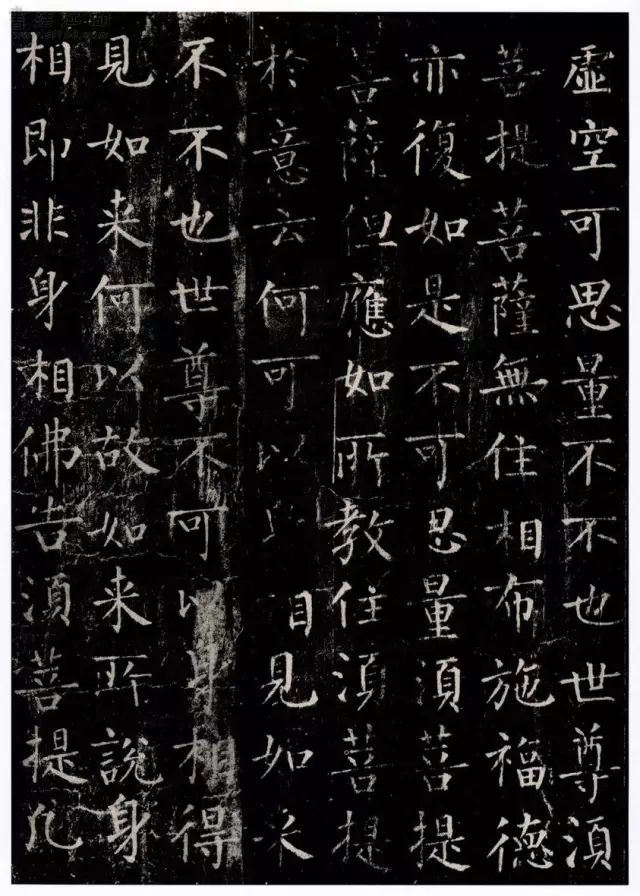 虛空可思量不不也世尊須
菩提菩薩無住相布施福德
亦復如是不可思量須菩提
菩薩但應如所教住須菩提
於意云何可以見如来
不不也世尊不可以身相得
見如来何以故如来所說身
相即非身相佛告須菩提凡